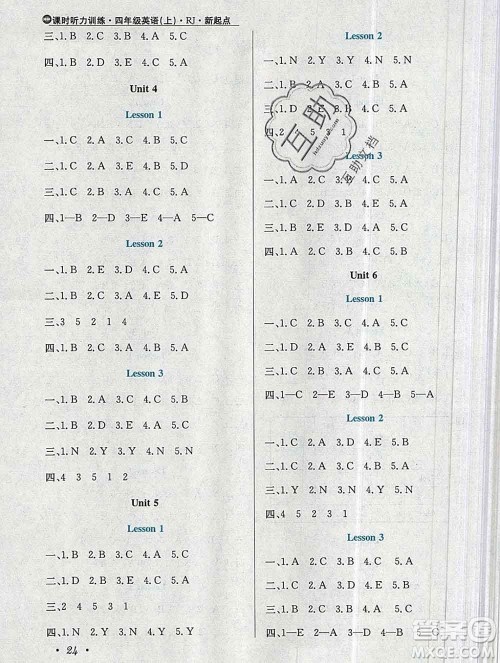 课时听力训练·四年级英语(上)·RJ·新起点
三、1.B 2.C 3.B 4.A 5.C
四、1.B 2.A 3.C 4.B 5.A
Unit 4
Lesson 1
一、1.C 2.A 3.C 4.B 5.C
二、1.B 2.A 3.A 4.B 5.B
三、1.B 2.C 3.B 4.A 5.C
四、1—B 2—D 3—E 4—A 5—C
Lesson 2
一、1.B 2.B 3.A 4.C 5.A
二、1.B 2.A 3.D 4.E 5.C
三、3 5 2 1 4
四、1.B 2.A 3.A 4.B 5.A
Lesson 3
一、1.C 2.B 3.B 4.C 5.A
二、1.D 2.E 3.B 4.A 5.C
三、1.N 2.Y 3.N 4.Y 5.Y
四、4 3 5 1 2
Unit 5
Lesson 1
一、1.B 2.B 3.C 4.A 5.C
二、1.B 2.C 3.A 4.A 5.A
三、2 4 5 3 1
四、1.B 2.B 3.A 4.A 5.C
24
Lesson 2
一、1.C 2.A 3.B 4.A 5.C
二、1.N 2.Y 3.Y 4.N 5.N
三、1.D 2.C 3.E 4.A 5.B
四、2 4 5 3 1
Lesson 3
一、1.C 2.B 3.A 4.C 5.A
二、1.C 2.B 3.B 4.A 5.A
三、1.B 2.B 3.C 4.B 5.A
四、1.C 2.A 3.B 4.A 5.A
Unit 6
Lesson 1
一、1.C 2.B 3.C 4.A 5.C
二、1.D 2.A 3.C 4.E 5.B
三、1.B 2.B 3.A 4.A 5.C
四、1—C 2—E 3—D 4—A 5—B
Lesson 2
一、1.C 2.A 3.D 4.E 5.B
二、1.C 2.B 3.A 4.B 5.A
三、1.Y 2.N 3.Y 4.N 5.N
四、4 2 5 1 3
Lesson 3
一、1.C 2.B 3.A 4.B 5.A
二、1.B 2.B 3.A 4.B 5.C
三、1.D 2.E 3.B 4.C 5.A
四、1.B 2.A 3.C 4.B 5.B
互助
互助文档
答案圈
MXQE.COM